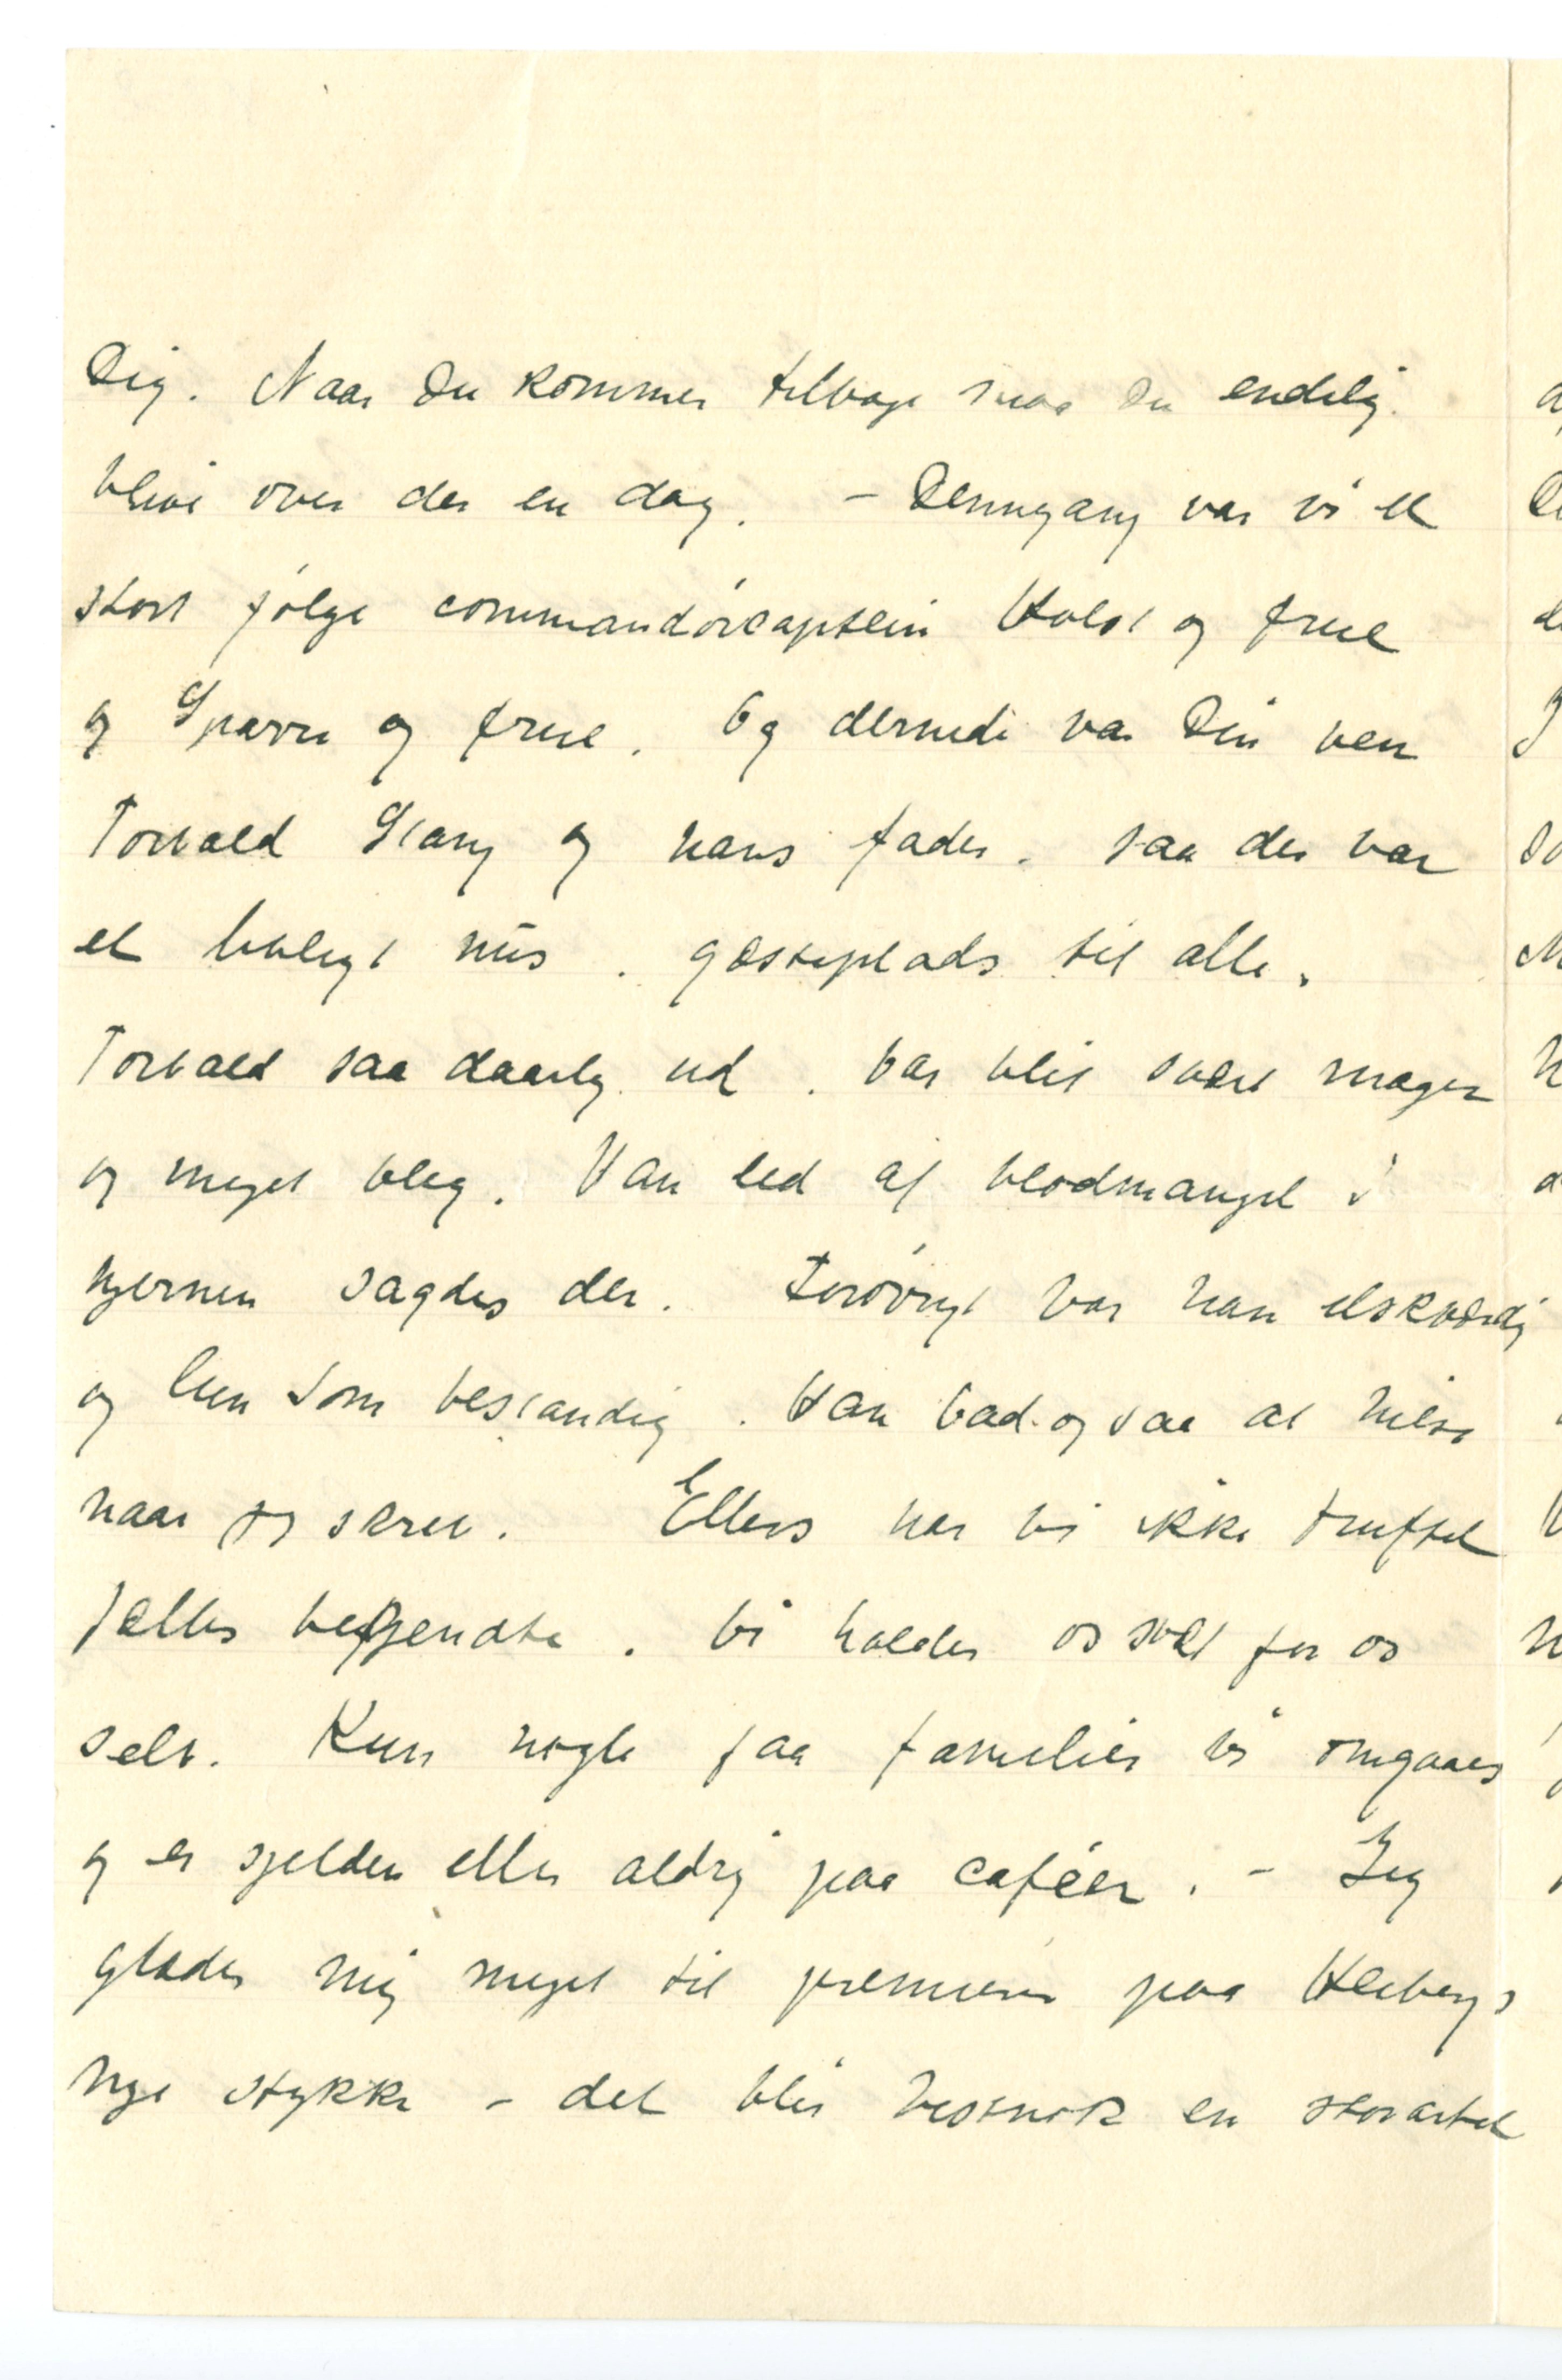 Dig. Naar Du kommer tilbage maa Du endelig
blive over der en dag. – Denngang var vi et
stort følge commandørcaptein Holst og frue
og Sparre og frue. Og dernede var Din ven
Torvald Stang og hans fader. saa der var
et livligt hus. gæsteplads til alle.
Torvald saa daarlig ud. var blit svært mager
og meget bleg. Han led af blodmangel i
hjernen sagdes der. Forøvrigt var han elskværdig
og lun som bestandig. Han bad ogsaa at hilse
naar jeg skrev. Ellers har vi ikke truffet
fælles bekjendte. Vi holder os svært for os
selv. Kun nogle faa familier vi omgaaes
og er sjelden eller aldrig paa caféer. – Jeg
glæder mig meget til premieren paa Heibergs
nye stykke – det blir vistnok en storartet